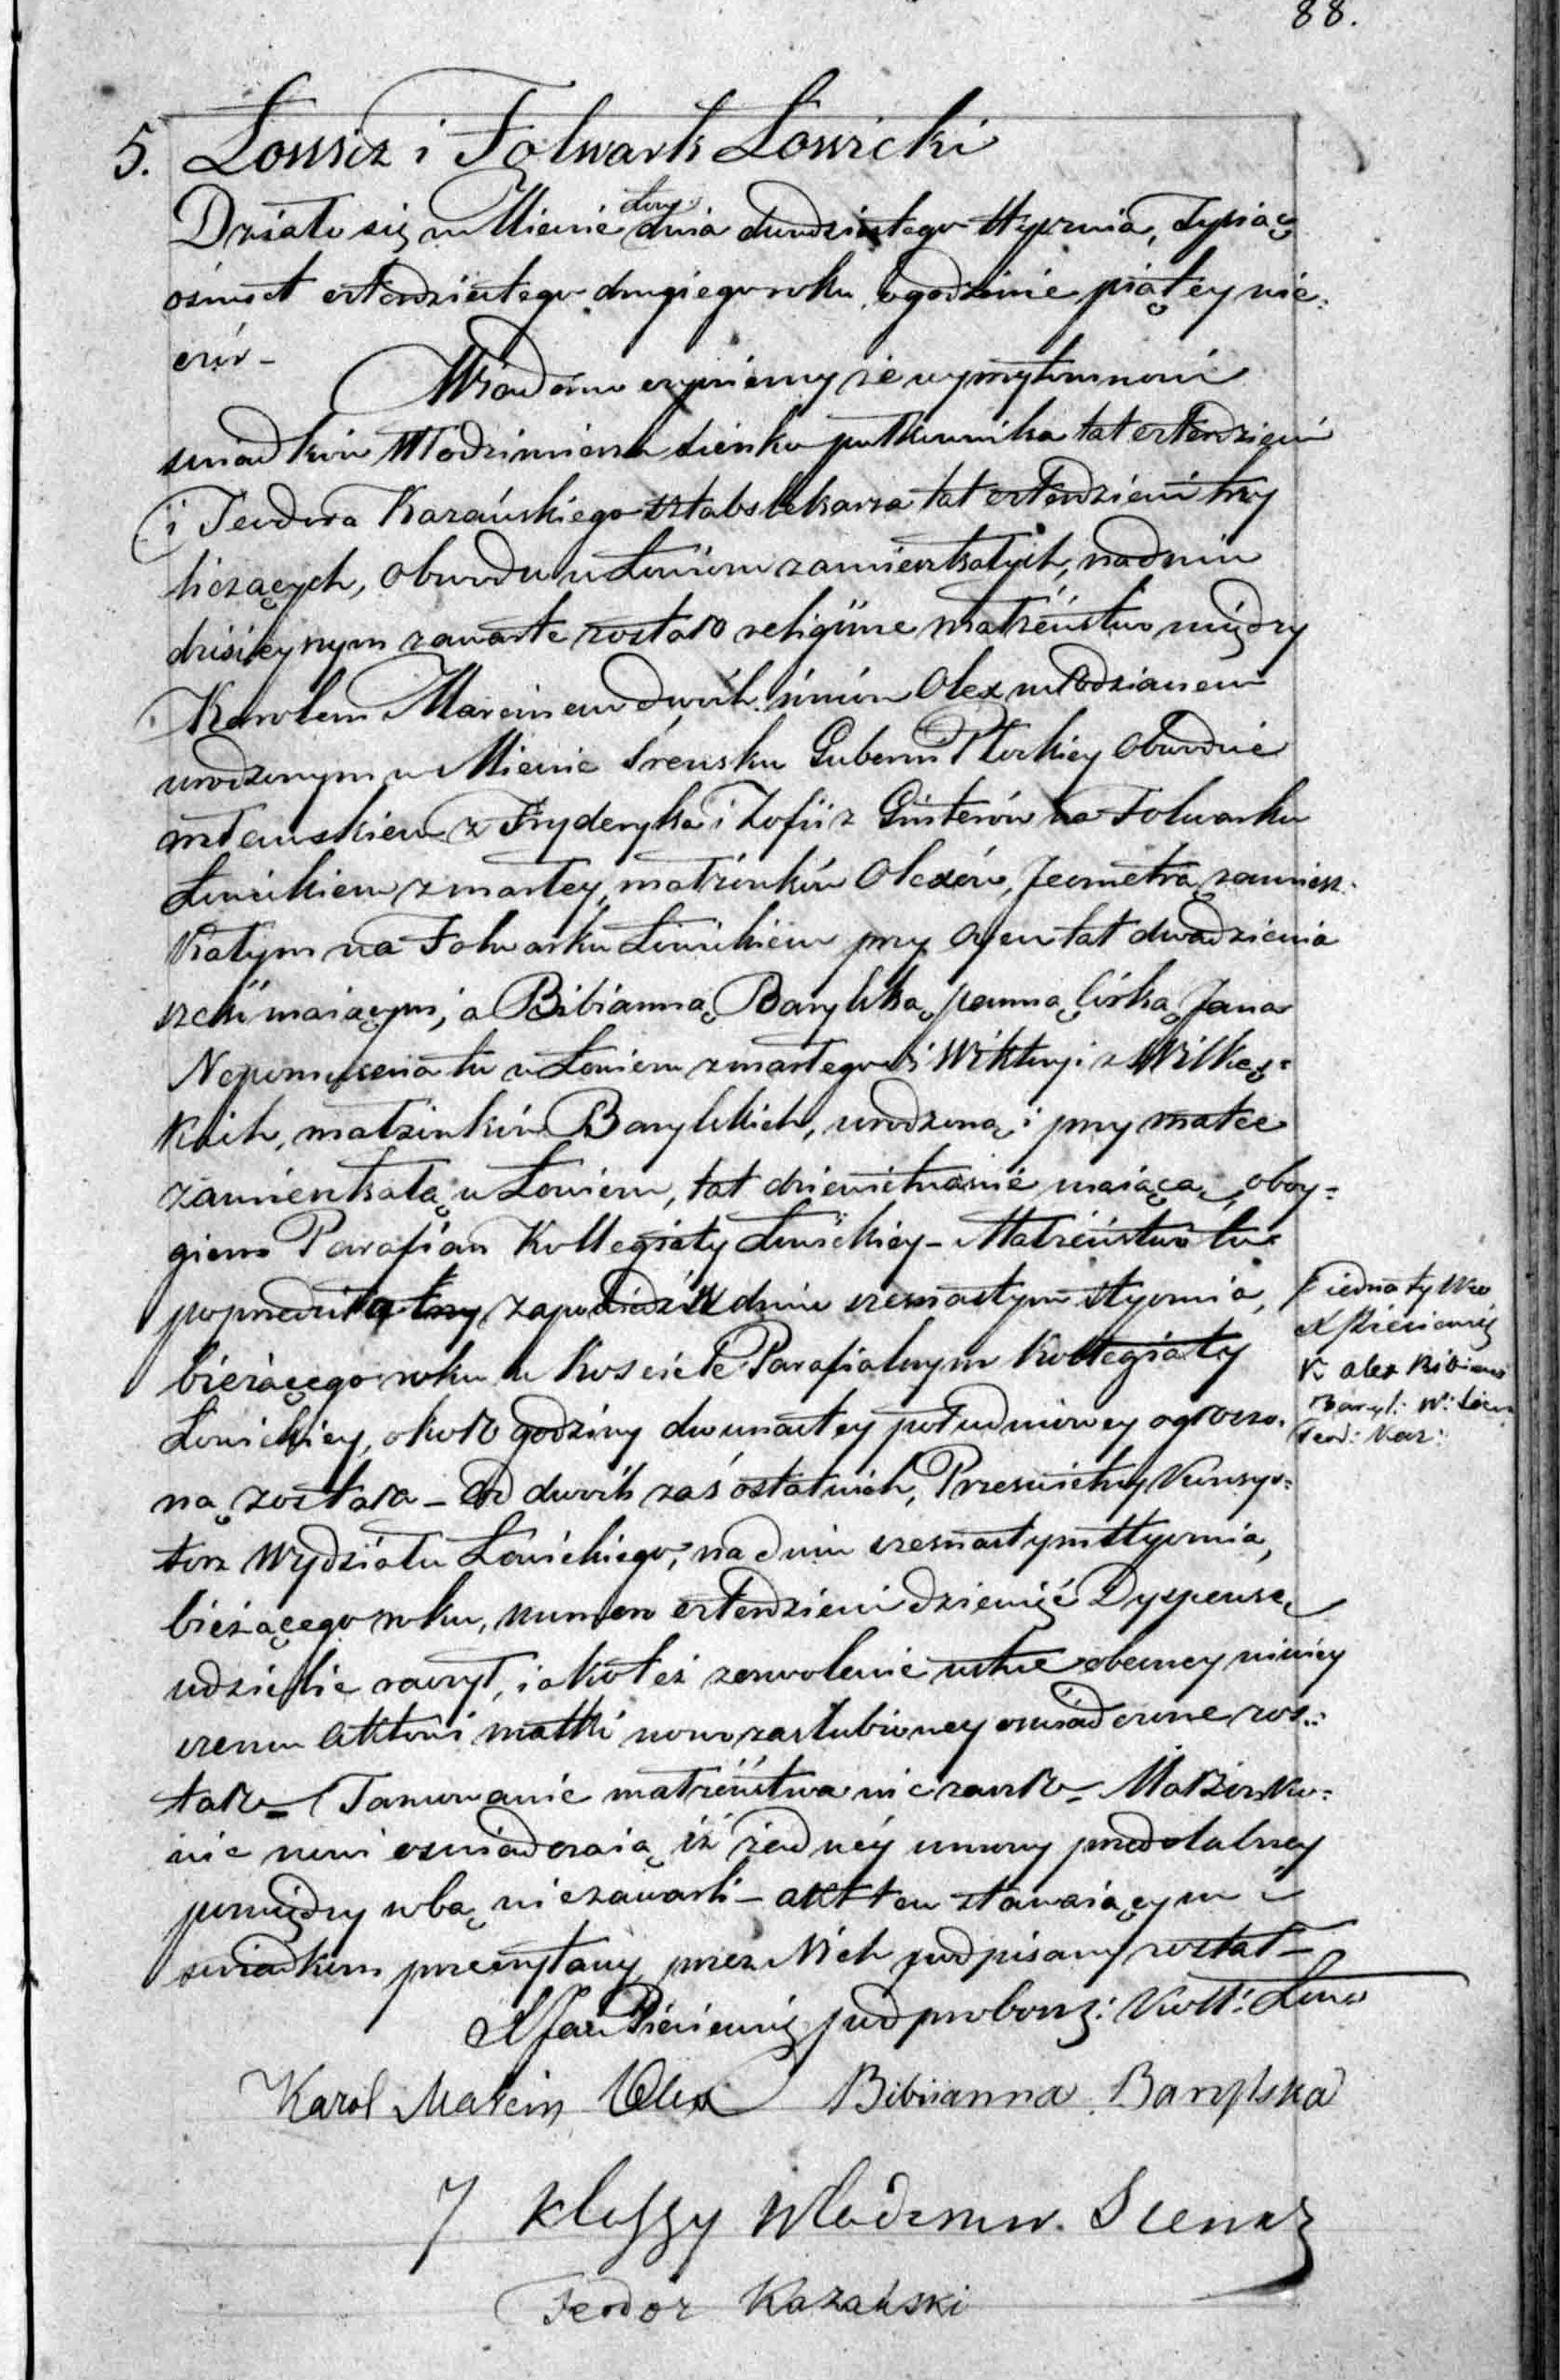 88.
5. Łowicz i Folwark Łowicki
Działo się w Mieście Łowi:
dnia dwudziestego Stycznia, Tysiąc
ośmset czterdziestego drugiego roku, o godzinie piątey wie:
czór -
Wiadomo czyniemy że w przytomności
świadków Włodzimierza Sienko pułkownika lat czterdzieści
i Teodora Kazańskiego sztabslekarza lat czterdzieści trzy
liczących, obudwu w Łowiczu zamieszkałych, na dniu
dzisieynym zawarte zostało religiine małżeństwo między
Karolem Marcinem dwóch imion Olex młodzianem
urodzonym w Mieście Śreńsku Gubernii Płockiey Obwodzie
mławskiem z Fryderyka i Zofii z Ginterów na Folwarku
Łowickiem zmarłey, małżonków Olexów, Jeometrą zamiesz:
kałym na Folwarku Łowickiem przy Oycu lat dwadzieścia
sześć maiącym, a Bibianną Barylską panną córką Jana
Nepomucena tu w Łowiczu zmarłego i Wiktoryi z
małżonków Barylskich, urodzoną i przy matce
zamieszkałą w Łowiczu, lat dziewietnaście maiącą, oboy:
giem Parafian Kollegiaty Łowickiey - Małżeństwo to
poprzedziła zapowiedź w dniu szesnastym stycznia,
bieżącego roku w Kościele Parafialnym Kollegiaty
Łowickiey, około godziny dwunastey południowey ogłoszo:
ną została - Od dwóch zaś ostatnich, Prześwietny Konsys:
torz Wydziału Łowickiego, na dniu szesnastym stycznia,
bieżącego roku, numero czterdzieści dziewięć Dyspensę
udzielić raczył, iako też zezwolenie ustne obecney niniey
szemu Aktowi matki nowo zaślubioney oświadczone zos:
tało - Tamowanie małżeństwa nie zaszło - Małżonko:
wie nowi oświadczaią iż żadney umowy przedślubney
pomiędzy sobą nie zawarli - akt ten stawaiącym i
świadkom przeczytany przez Nich podpisany został -
X Jan podprobosz: Koll: Łowi
Karol Marcin Olex Bibianna Barylska
Włodzimir.
Feodor Kazański
iedna tylko
X
K Olex Bibiana
Baryl: W:
Teod: Kaz: